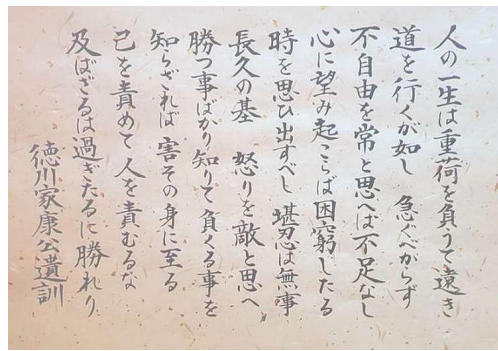 人の一生は重荷を負うて遠き
道を行くが如し 急ぐべからず
不自由を常と思へば不足なし
心に望み起こらば困窮したる
時を思ひ出すべし 堪忍は無事
長久の基 怒りを敵と思へ
勝つ事ばかり知りて負くる事を
知らざれば 害その身に至る
己を責めて人を責むるな
及ばざるは過ぎたるに勝れり
徳川家康公遺訓